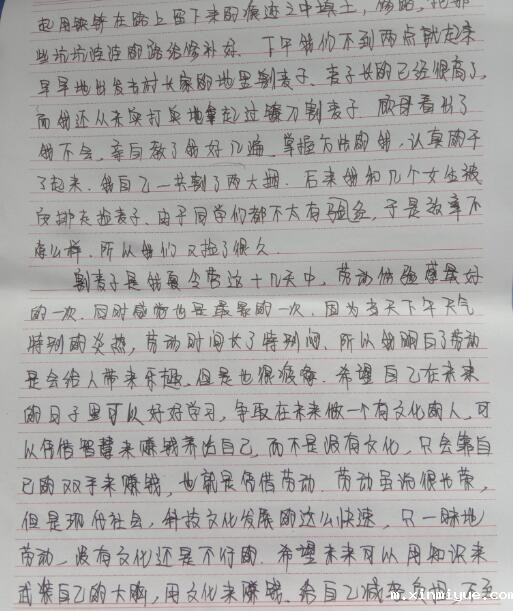 起用铁锹在路上留下来的痕迹之中填土,修路,把那
些坑坑洼洼的路给修补好。下午我们不到两点就起来
早早地出发去村长家的地里割麦子、麦子长的已经很高了,
而我还从未实打实地拿起过镰刀割麦子。顾母看出了
我不会,亲自教了我好几遍。掌握方法的我,认真的干
了起来.我自己一共割了两大捆.后来我和几个女生被
安排去捡麦子、由于同学们都不太有经验,于是效率不
怎么样.所以我们又捡了很久.
割麦子是我夏令营这十几天中,劳动体验感最好
的一次.同时感悟也是最最的一次.因为当天下午天气
特别的炎热,劳动时间长了特别闷.所以我明白了劳动
是会给人带来乐趣.但是也很疲惫.希望自己在未来
的日子里可以好好学习,争取在未来做一个有文化的人,可
以凭借智慧来赚钱养活自己,而不是没有文化,只会靠自
己的双手来赚钱,也就是凭借劳动.劳动虽说很光荣,
但是现代社会,科技文化发展的这么快速,只一昧地
劳动,没有文化还是不行的.希望未来可以用知识来
武装自己的大脑,用文化来赚钱.给自己减轻负担.
m.xinmiyue.com